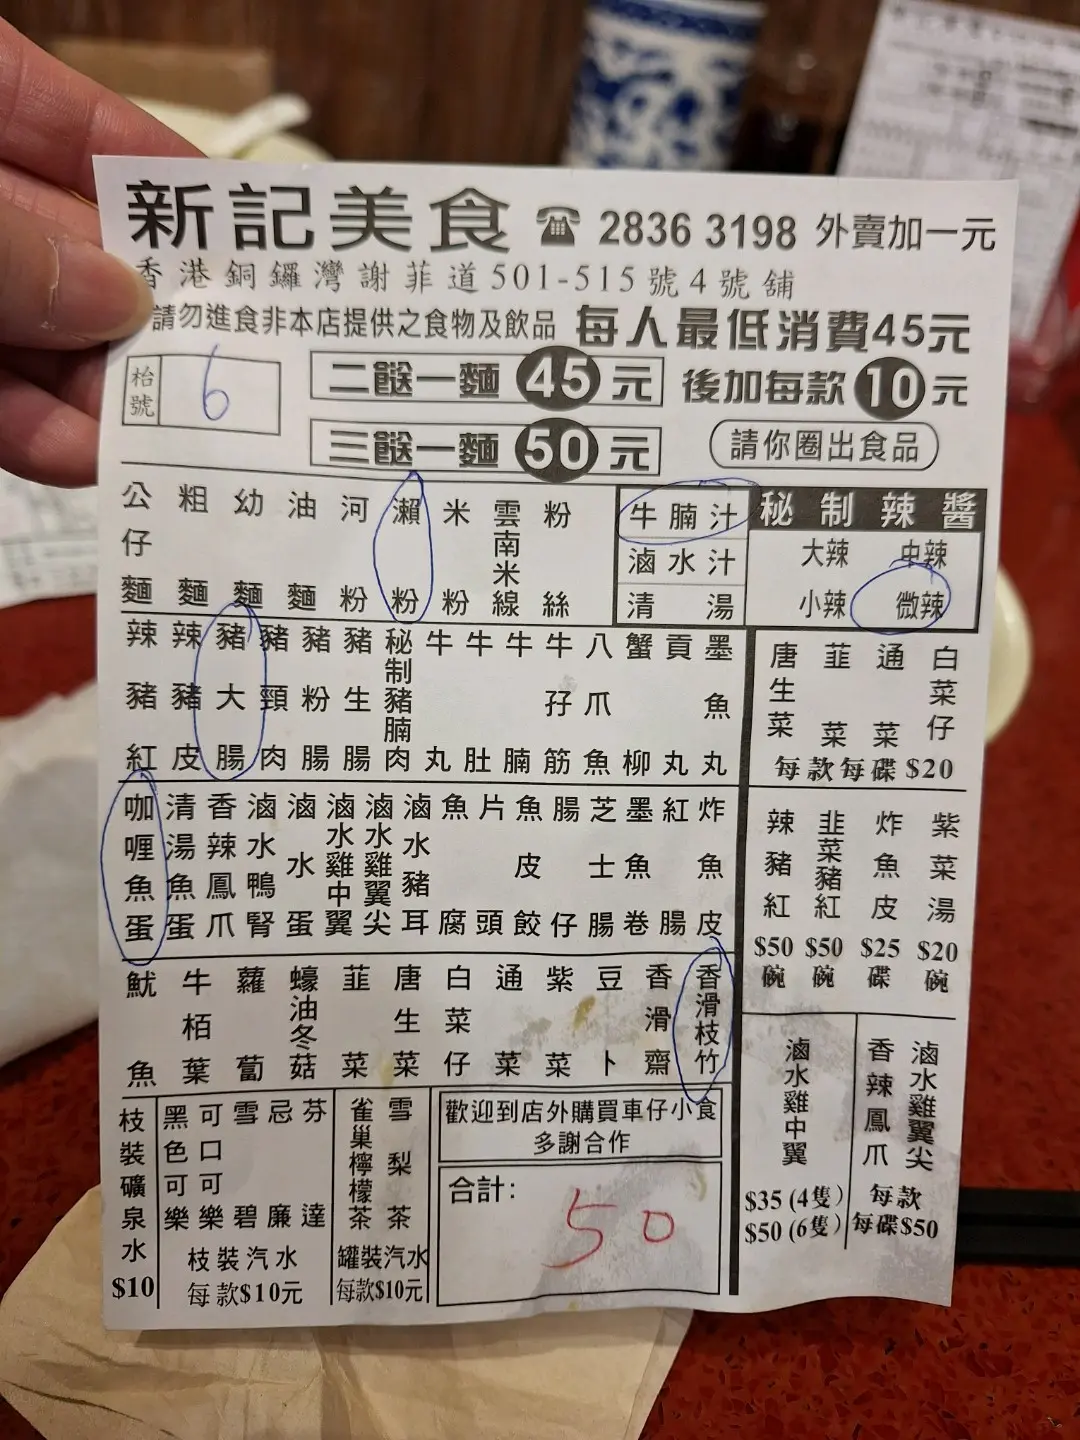 新記美食 ☎ 2836 3198 外賣加一元
香港銅鑼灣謝菲道501-515號4號舖
請勿進食非本店提供之食物及飲品 每人最低消費45元
枱號 6
二餸一麵 45 元 後加每款 10 元
三餸一麵 50 元 請你圈出食品
公仔麵 粗麵 幼麵 油麵 河粉 瀨粉 米粉 雲南米線 粉絲
牛腩汁
滷水汁
清湯
秘制辣醬
大辣 中辣
小辣 微辣
辣豬紅 辣豬皮 豬大腸 豬頸肉 豬粉腸 豬生腸 秘制豬腩肉 牛丸 牛肚 牛腩 牛孖筋 八爪魚 蟹柳 貢丸 墨魚丸
唐生菜 韮菜 通菜 白菜仔
每款每碟$20
咖喱魚蛋 清湯魚蛋 香辣鳳爪 滷水鴨腎 滷水蛋 滷水雞中翼 滷水雞翼尖 滷水豬耳 魚腐 片頭 魚皮餃 腸仔 芝士腸 墨魚卷 紅腸 炸魚皮
辣豬紅 $50碗
韮菜豬紅 $50碗
炸魚皮 $25碟
紫菜湯 $20碗
魷魚 牛栢葉 蘿蔔 蠔油冬菇 韮菜 唐生菜 白菜仔 通菜 紫菜 豆卜 香滑齋 香滑枝竹
滷水雞中翼
$35 (4隻)
$50 (6隻)
香辣鳳爪 滷水雞翼尖
每款
每碟$50
枝裝礦泉水
$10
黑色可樂 可口可樂 雪碧 忌廉 芬達
枝裝汽水
每款$10元
雀巢檸檬茶 雪梨茶
罐裝汽水
每款$10元
歡迎到店外購買車仔小食
多謝合作
合計:
50